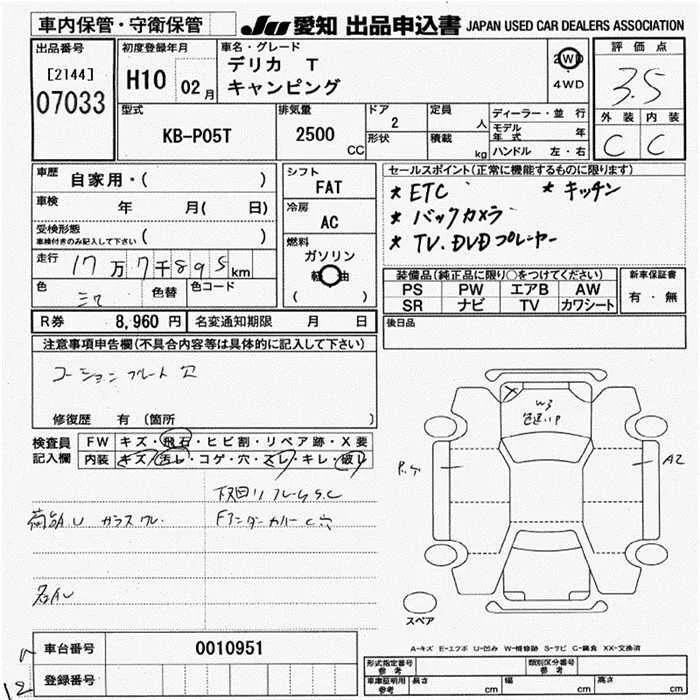 車内保管・守衛保管
JU 愛知 出品申込書 JAPAN USED CAR DEALERS ASSOCIATION
出品番号
[2144]
07033
初度登録年月
H10 02月
車名・グレード
デリカ T
キャンピング
2WD
4WD
評価点
3.5
外装 内装
C C
型式
KB-P05T
排気量
2500 CC
ドア
2
形状
定員
人
積載
kg
ディーラー・並行
モデル年式 年
ハンドル 左・右
車歴 自家用・( )
車検 年 月( 日)
受検形態
車検付きのみ記入して下さい ( )
走行 17万7千895km
色 色替 色コード
シフト
FAT
冷房
AC
燃料
ガソリン
軽油
( )
セールスポイント(正常に機能するものに限ります)
* ETC * キッチン
* バックカメラ
* TV.DVDプレーヤー
装備品(純正品に限り○をつけてください)
PS PW エアB AW
SR ナビ TV カワシート
新車保証書
有・無
後日品
R券 8,960 円 名変通知期限 月 日
注意事項申告欄(不具合内容等は具体的に記入して下さい)
コーションプレート欠
修復歴 有 (箇所 )
検査員記入欄
FW キズ・飛石・ヒビ割・リペア跡・X要
内装 キズ・汚レ・コゲ・穴・スレ・キレ・破レ
下回リフレームS.C
ガラスワレ
Fアンダーカバー
W3
色違いP
A2
スペア
A-キズ E-エクボ U-凹み W-補修跡 S-サビ C-腐食 XX-交換済
車台番号 0010951
登録番号
形式指定番号
参考
類別区分番号
参考
車庫証明用
参考
長さ cm 幅 cm 高さ cm